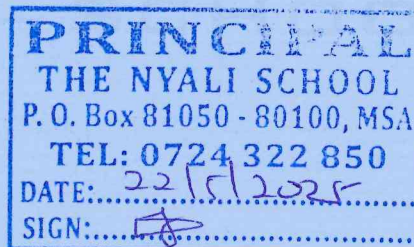 PRINCIPAL
THE NYALI SCHOOL
P. O. Box 81050 - 80100, MSA
TEL: 0724 322 850
DATE:....22/5/2025....
SIGN:....